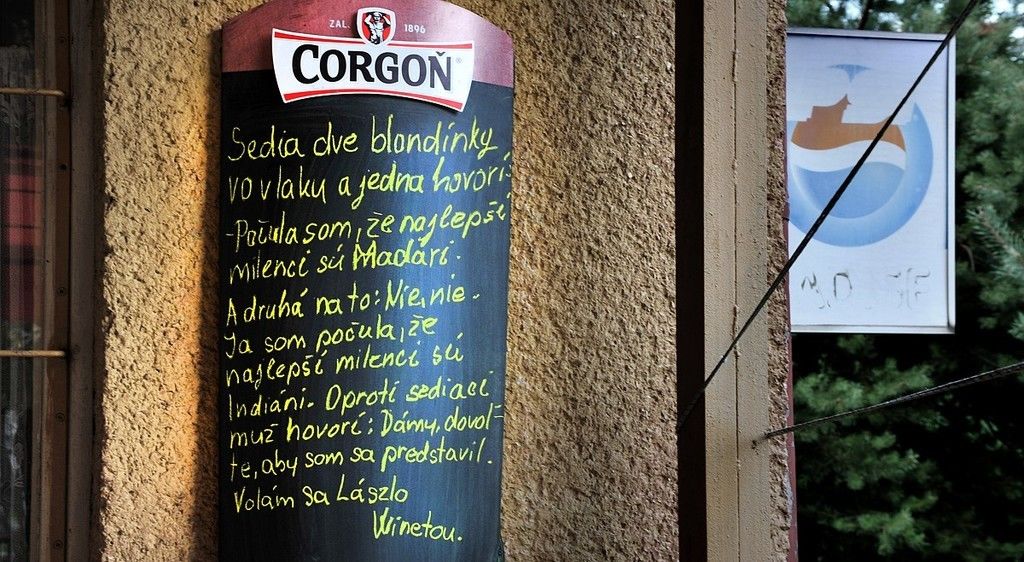 ZAL. 1896
CORGOŇ
Sedia dve blondínky
vo vlaku a jedna hovorí:
-Počula som, že najlepší
milenci sú Maďári.
A druhá na to: Nie, nie.
Ja som počula, že
najlepší milenci sú
Indiáni. Oproti sediaci
muž hovorí: Dámy, dovoľ-
te, aby som sa predstavil.
Volám sa László
Winetou.